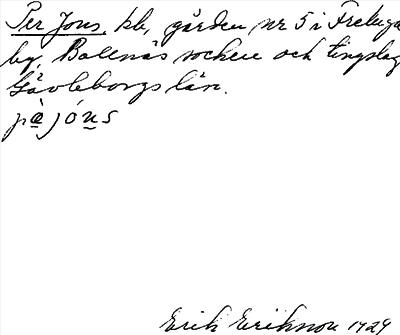 Per Jons, hb, gården nr 5 i Freluga
by, Bollnäs socken och tingslag
Gävleborgs län.
pà̱ jón̲s
Erik Erikson 1929